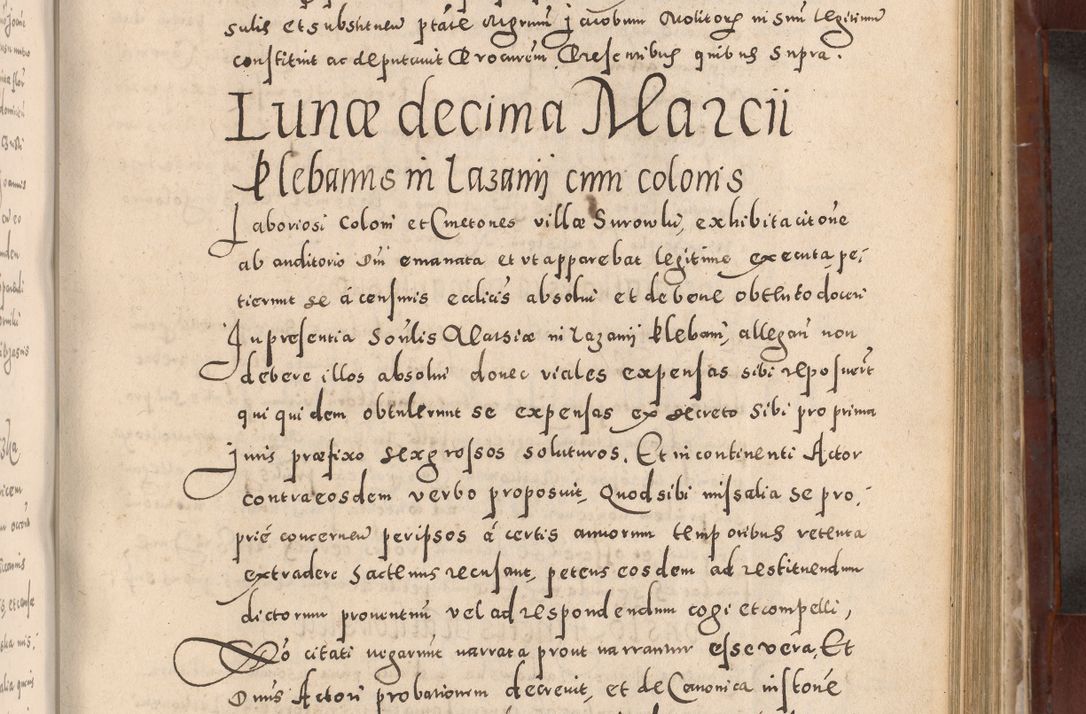 sulis et substituen ptãie Mgrum Jacobum Molitorẽ in suũ legitimũ
constituit ac deputavit Procurẽm Præsentibus quibus supra.
Lunæ decima Marcii
Plebanus in Lazanij cum colonis
Laboriosi Coloni et Cmetones villæ Surowki, exhibita citõne
ab auditorio Dñi emanata et ut apparebat legitime executa, pe,
tierunt se á censuris ecclicis absolui et de bene obtento doceri
In presentia Soñlis Mathiæ in Lazanij Plebani, allegan̄ non
debere illos absolui donec viales expensas sibi reposuerĩt
qui quidem obtulerunt se expensas ex decreto sibi pro prima
juris præfixo sex grossos soluturos. Et in continenti Actor
contra eosdem verbo proposuit, Quod sibi missalia se pro,
prié concernen̄ per ipsos á certis annorum temporibus retenta
extradere hactenus recusant, petens eosdem ad restituendum
dictorum proventuũ vel ad respondendum cogi et compelli,
citati negarunt narrata prout narrantur esse vera, Et
Dnus Actori probationem decrevit, et de Canonica instõne